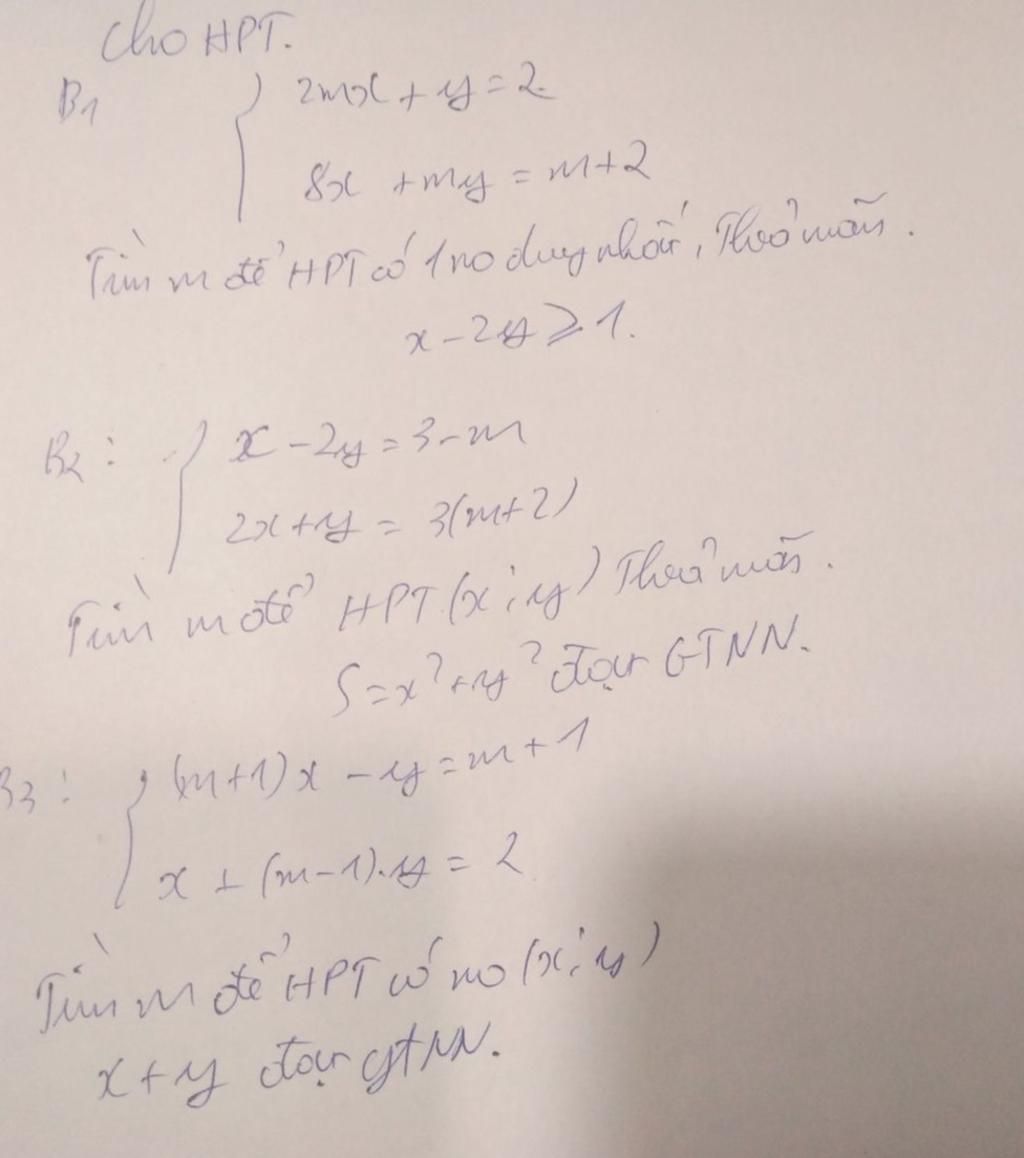 Cho HPT.
B1 { 2mx + y = 2
8x + my = m+2
Tìm m để HPT có 1 no duy nhất, Thoả mãn.
x - 2y ⩾ 1.
B2: { x - 2y = 3-m
2x+y = 3(m+2)
Tìm m để HPT (x; y) Thoả mãn.
S = x² + y² đạt GTNN.
B3: { (m+1)x - y = m+1
x + (m-1).y = 2
Tìm m để HPT có no (x; y)
x+y đạt gtNN.